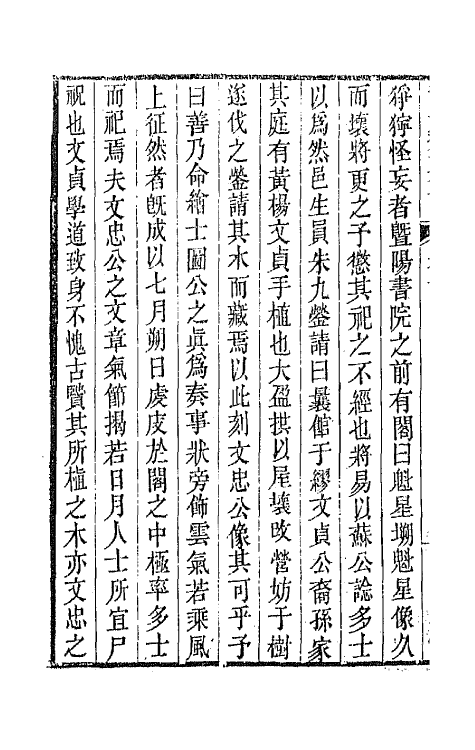 猙獰怪妄者暨陽書院之前有閣曰魁星塑魁星像久
而壞將更之予懲其祀之不經也將易以蘇公諗多士
以爲然邑生員朱九鎣請曰曩館于繆文貞公裔孫家
其庭有黃楊文貞手植也大盈拱以屋壞改營妨于樹
遂伐之鎣請其木而藏焉以此刻文忠公像其可乎予
曰善乃命繪士圖公之眞爲奏事狀旁飾雲氣若乘風
上征然者旣成以七月朔日虔庋於閣之中極率多士
而祀焉夫文忠公之文章氣節揭若日月人士所宜尸
祝也文貞學道致身不愧古賢其所植之木亦文忠之